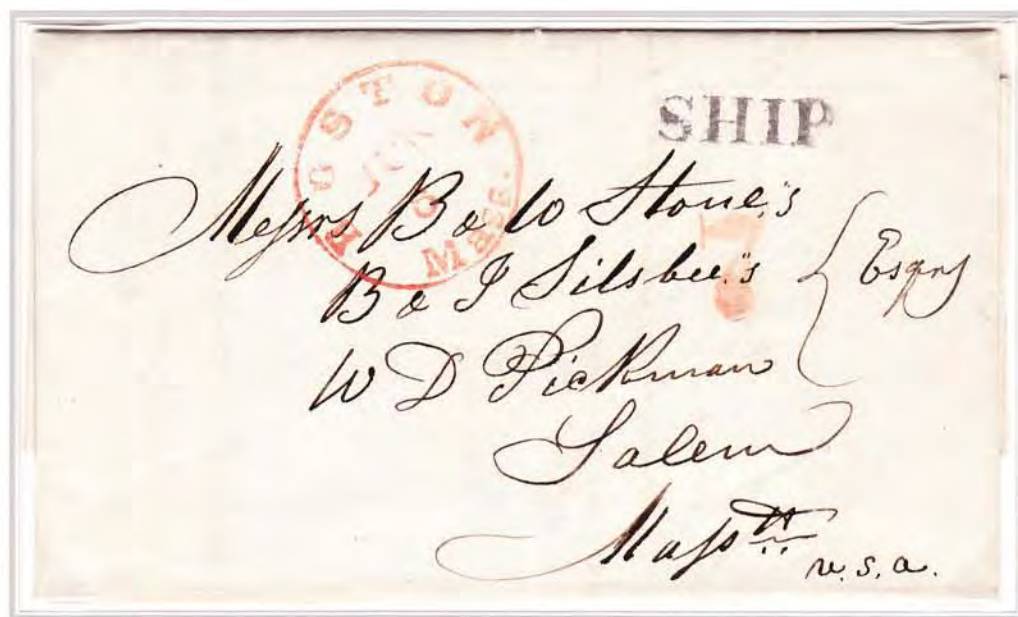 BOSTON
JUN
MASS.
SHIP
7
Messrs B & W Stone's
B & J Silsbee's } Esqrs
W D Pickman
Salem
Massts
U.S.A.